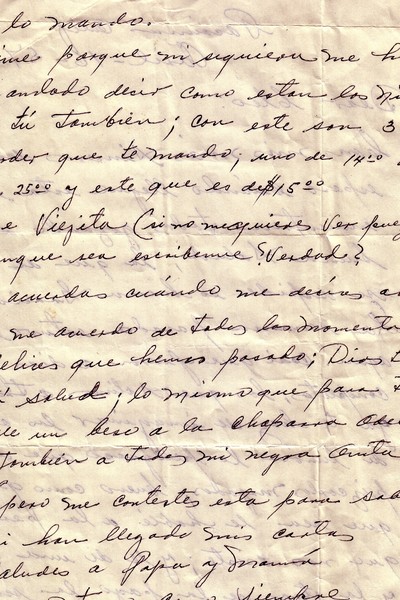 lo mando.
ime porque ni siquiera me h
andado decir como estan los ni
tú también; con este son 3
order que te mando, uno de 14.00
25.00 y este que es de $15.00
e Viejita (si no me quieres ver pue
unque sea escribeme ¿Verdad?
acuerdas cuándo me decias
me acuerdo de todos los momento
felices que hemos pasado; Dios
salud; lo mismo que para
un beso a la chaparra
también a todos mi negra
pero me contestes esta para sab
i han llegado mis cartas
aludes a Papa y Mamá
siempre